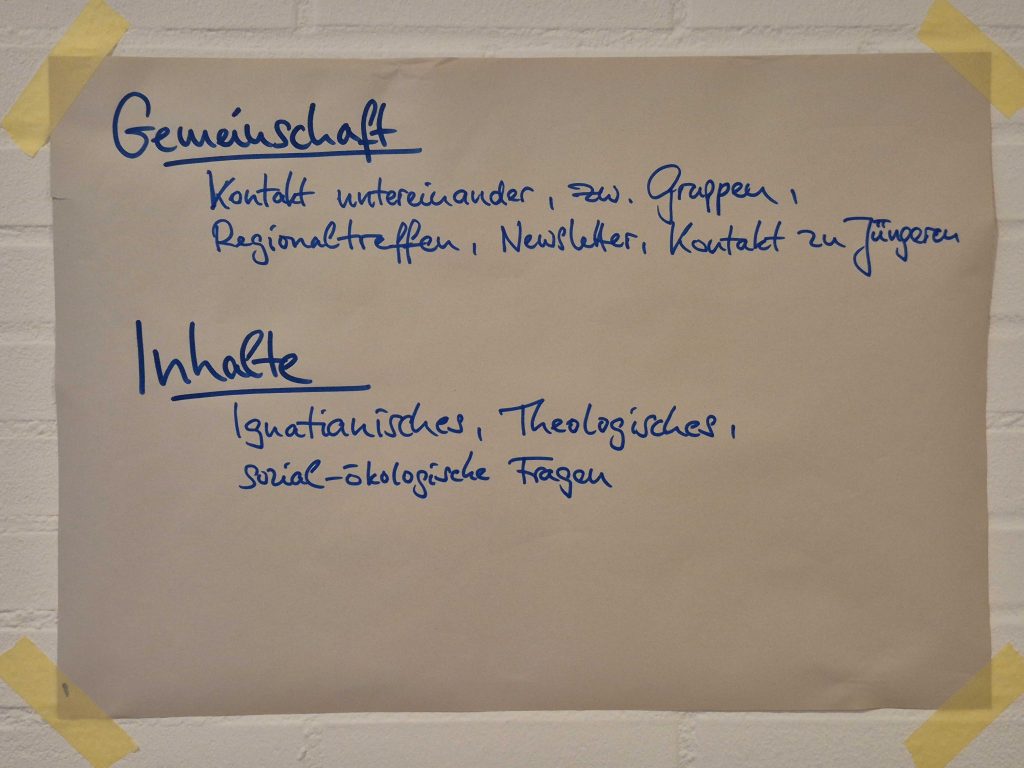 Gemeinschaft
Kontakt untereinander, zw. Gruppen,
Regionaltreffen, Newsletter, Kontakt zu Jüngeren
Inhalte
Ignatianisches, Theologisches,
sozial-ökologische Fragen